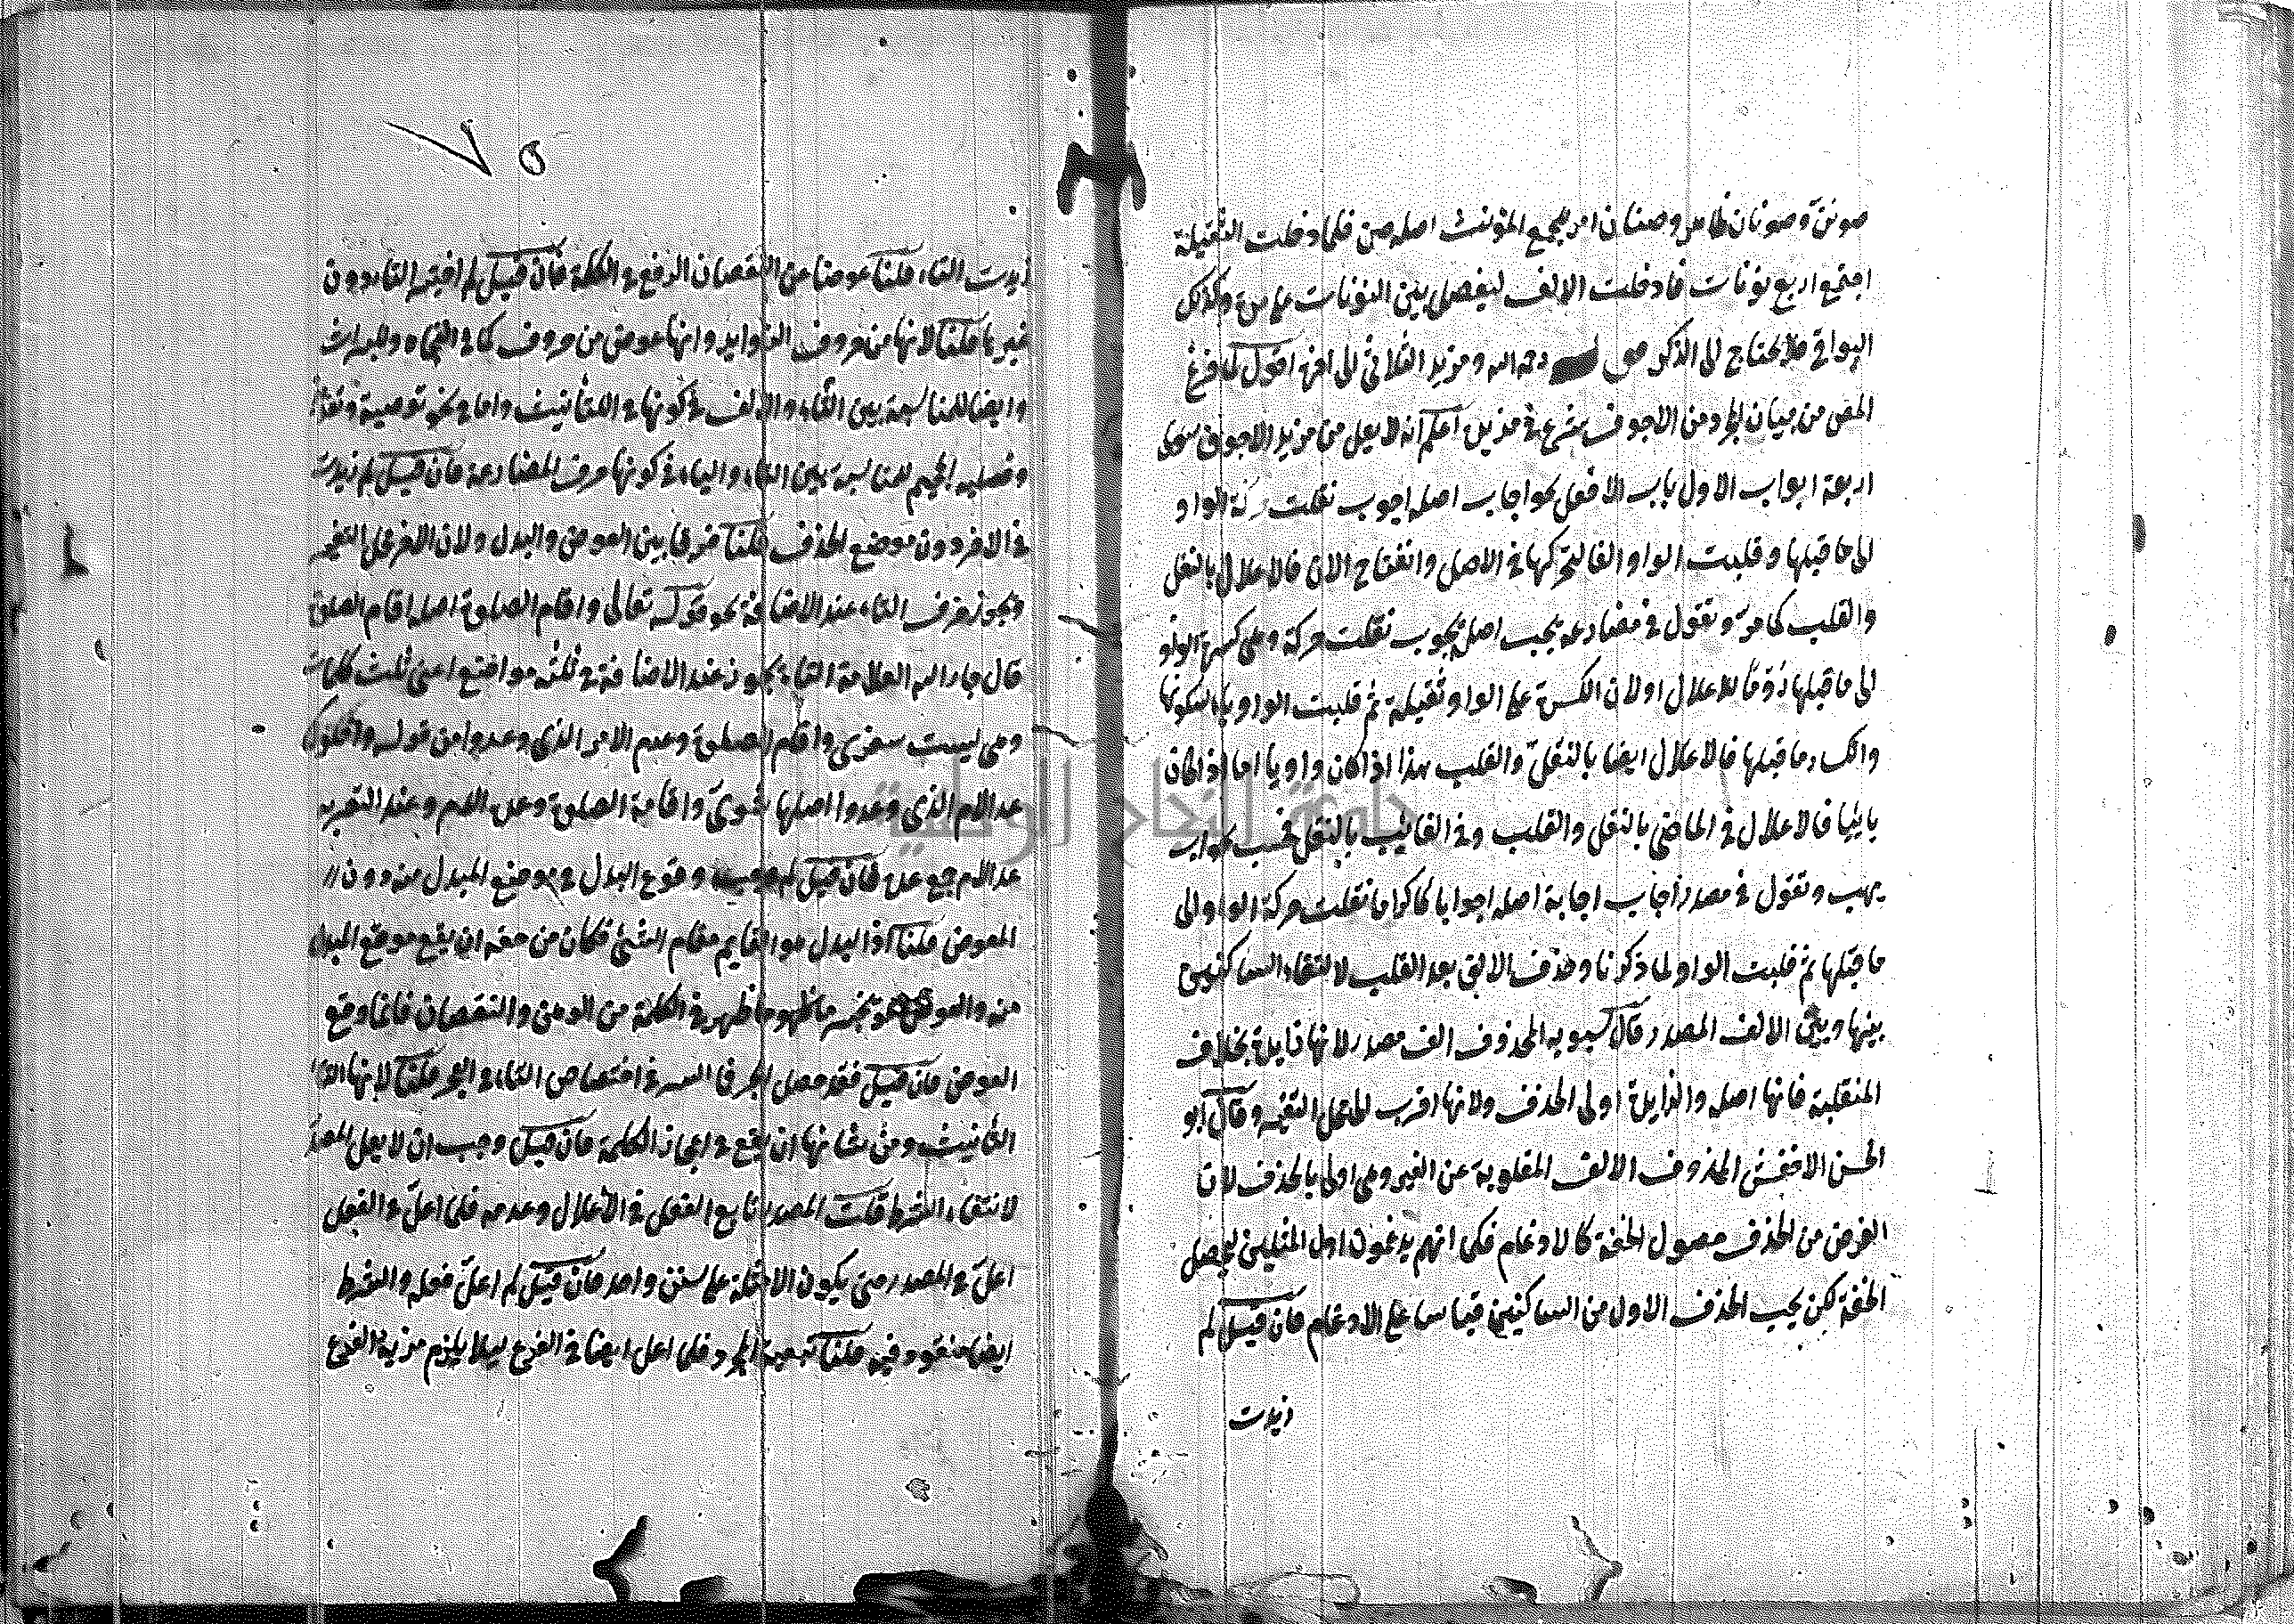 صونن وصونان ظاهر وصنان امر لجمع المؤنث اصله صن فلما دخلت الثقيلة
اجتمع اربع نونات فادخلت الالف ليفصل بين النونات على مر وكذلك
البواقي فلا يحتاج الى الذكر رحمه الله ومزيد الثلاثي الى اخره اقول لما فرغ
المص من بيان المجرد من الاجوف شرع في مزيد اعلم انه لا يعل من مزيد الاجوف سوى
اربعة ابواب الاول باب الافعل نحو اجاب اصله اجوب نقلت حركة الواو
الى ما قبلها وقلبت الواو الفا لتحركها في الاصل وانفتاح الان فالاعلال بالنقل
والقلب كما مر وتقول في مضارعه يجيب اصله يجوب نقلت حركة وهي كسرة الواو
الى ما قبلها للاعلال اولان الكسرة على الواو ثقيلة ثم قلبت الواو ياء لسكونها
وانكسار ما قبلها فالاعلال ايضا بالنقل والقلب هذا اذا كان واويا اما اذا كان
يائيا فالاعلال في الماضي بالنقل والقلب وفي الغايب بالنقل فحسب
يهيب وتقول في مصدر اجاب اجابة اصله اجوابا كاكراما نقلت حركة الواو الى
ما قبلها ثم قلبت الواو لما ذكرنا وحذف الالف بعد القلب لالتقاء الساكنين
بينها وبين الالف المصدر قال سيبويه المحذوف الف مصدر لانها زايدة بخلاف
المنقلبة فانها اصله والزايدة اولى الحذف ولانها اقرب الى محل التغير وقال ابو
الحسن الاخفش المحذوف الالف المقلوبة عن الغير وهي اولى بالحذف لان
الغرض من الحذف حصول الخفة كالادغام فكما انهم يدغمون اول المثلين ليحصل
الخفة لكن يجب الحذف الاول من الساكنين قياسا على الادغام فان قيل لم
زيدت
٧٥
زيدت التاء قلنا عوضا عن النقصان الدفع في الكلمة فان قيل لم اختير التاء دون
غيرها قلنا لانها من حروف الزوايد وانها عوض من حروف كما في التجاه والتراث
وايضا للمناسبة بين التاء والالف في كونها في التأنيث واما في نحو توصية
للمناسبة بين التاء والياء في كونها حرف المضارعة فان قيل لم زيدت
في الاخر دون موضع الحذف قلنا فرقا بين العوض والبدل ولان الاخر محل التغير
ويجوز حذف التاء عند الاضافة نحو قوله تعالى واقام الصلوة اصله اقام الصلوة
قال جار الله العلامة التاء يجوز عند الاضافة في ثلثه مواضع اعني ثلث كلمات
وهي ليست شعري واقام الصلوة وعدم الامر الذي وعدوا من قوله
عد الامر الذي وعدوا اصلها واقامة الصلوة وعدة الامر وعند
عد الامر جمع عدة فان قيل لم وقوع البدل في موضع المبدل منه دون
المعوض قلنا اذ البدل هو القايم مقام الشئ فكان من حقه ان يقع موقع المبدل
منه والعوض ما ظهر في الكلمة من الوهن والنقصان فاينما وقع
العوض فان قيل فقد حصل الجبر فما السر في اختصاص التاء في العجز قلنا لانها التاء
التأنيث ومن شانها ان يقع في اعجاز الكلمة فان قيل وجب ان لا يعل المصدر
لانتفاء الشرط قلت المصدر تابع الفعل في الاعلال وعدمه فلما اعل في الفعل
اعل في المصدر حتى يكون الامثلة على سنن واحد فان قيل لم اعل فعله والشرط
ايضا منقود فيه قلنا تبعية المجرد فلما اعل ايضا في الفرع ليلا يلزم مزية الفرع